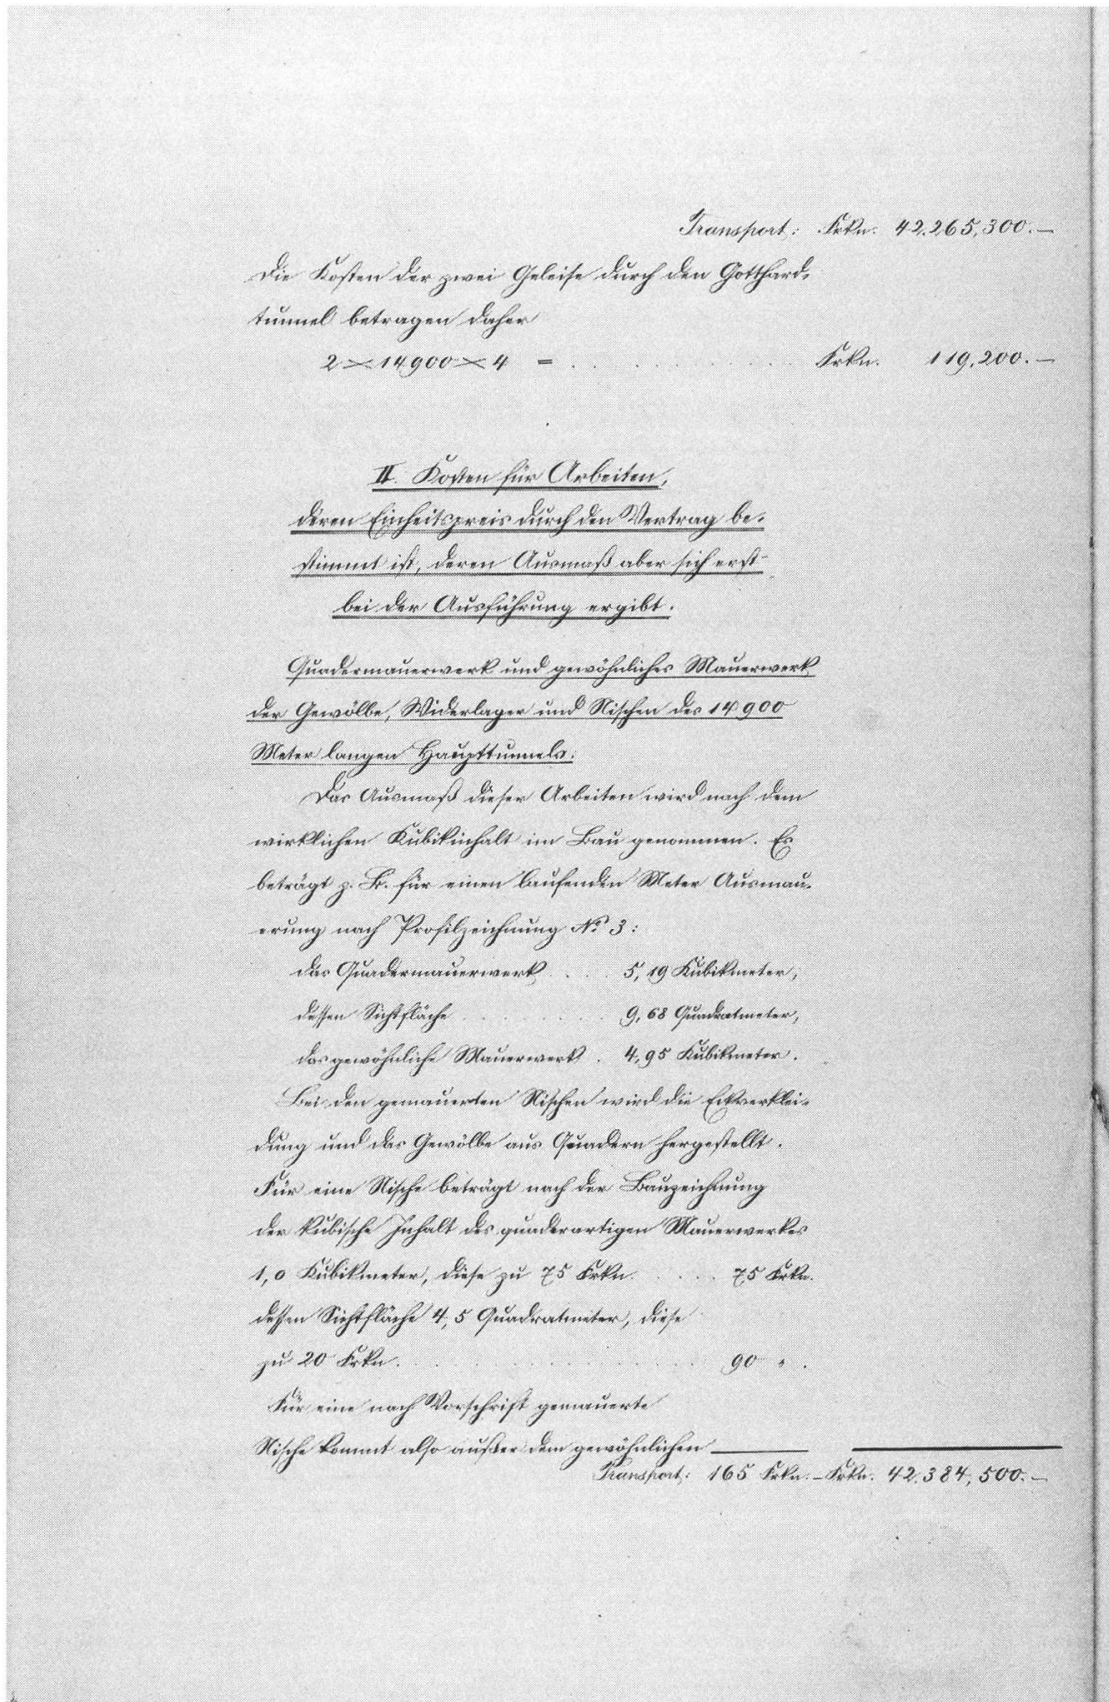 Transport: Frkn. 42.265,300.—
Die Kosten der zwei Geleise durch den Gotthard-
tunnel betragen daher
2 × 14900 × 4 = . . . . . . . . Frkn. 119,200.—
II. Kosten für Arbeiten,
deren Einheitspreis durch den Vertrag be-
stimmt ist, deren Ausmaß aber sich erst
bei der Ausführung ergibt.
Quadermauerwerk und gewöhnliches Mauerwerk
der Gewölbe, Widerlager und Nischen des 14900
Meter langen Haupttunnels.
Das Ausmaß dieser Arbeiten wird nach dem
wirklichen Kubikinhalt im Bau genommen. Es
beträgt z. B. für einen laufenden Meter Ausmau-
erung nach Profilzeichnung No. 3:
das Quadermauerwerk . . . 5,19 Kubikmeter,
dessen Sichtfläche . . . . . . . 9,68 Quadratmeter,
das gewöhnliche Mauerwerk . 4,95 Kubikmeter.
Bei den gemauerten Nischen wird die Eckverklei-
dung und das Gewölbe aus Quadern hergestellt.
Für eine Nische beträgt nach der Bauzeichnung
der kubische Inhalt des quaderartigen Mauerwerkes
1,0 Kubikmeter, diese zu 75 Frkn. . . . . 75 Frkn.
dessen Sichtfläche 4,5 Quadratmeter, diese
zu 20 Frkn. . . . . . . . . . . 90 " .
Für eine nach Vorschrift gemauerte
Nische kommt also außer dem gewöhnlichen
Transport: 165 Frkn. — Frkn. 42.384,500.—